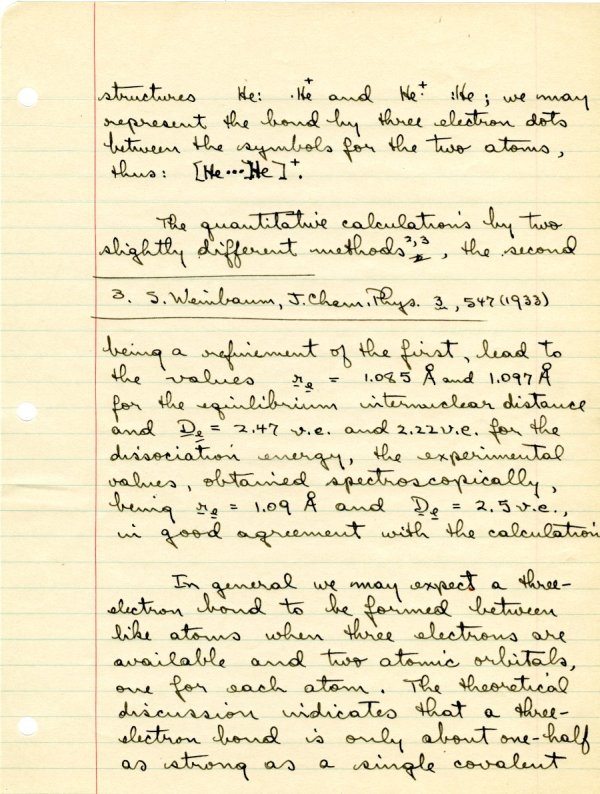 structures He: ·He⁺ and He⁺· :He ; we may
represent the bond by three electron dots
between the symbols for the two atoms,
thus: [He···He]⁺.
The quantitative calculations by two
slightly different methods²,³, the second
3. S. Weinbaum, J. Chem. Phys. 3, 547 (1933)
being a refinement of the first, lead to
the values re = 1.085 Å and 1.097 Å
for the equilibrium internuclear distance
and De = 2.47 v.e. and 2.22 v.e. for the
dissociation energy, the experimental
values, obtained spectroscopically,
being re = 1.09 Å and De = 2.5 v.e.,
in good agreement with the calculation
In general we may expect a three-
electron bond to be formed between
like atoms when three electrons are
available and two atomic orbitals,
one for each atom. The theoretical
discussion indicates that a three-
electron bond is only about one-half
as strong as a single covalent